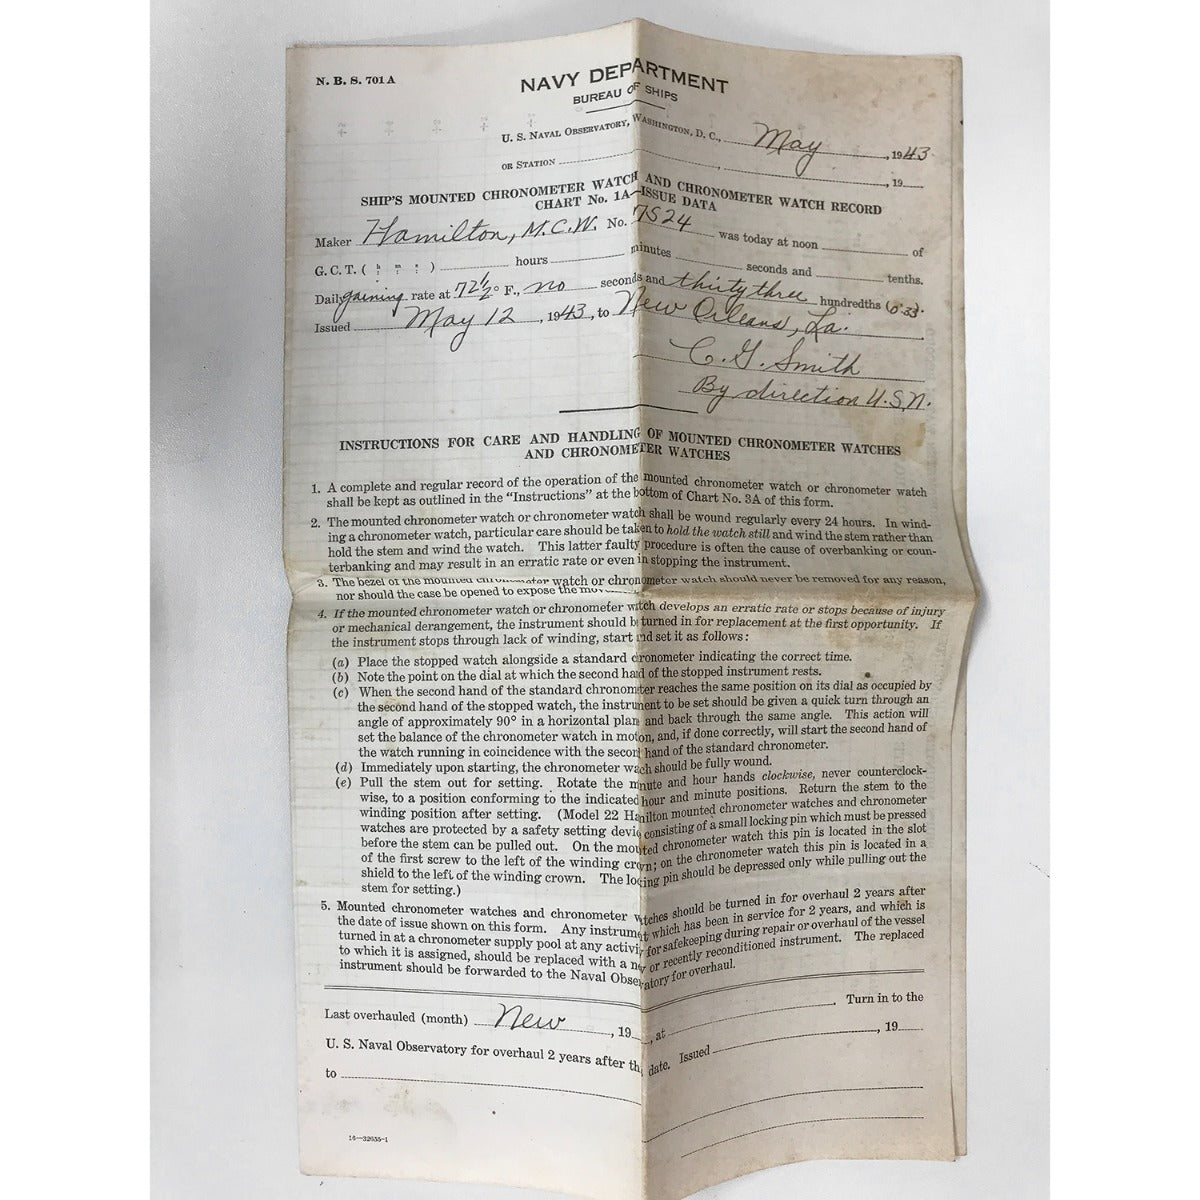 N. B. S. 701 A
NAVY DEPARTMENT
BUREAU OF SHIPS
U. S. NAVAL OBSERVATORY, WASHINGTON, D. C., May, 1943
OR STATION , 19
SHIP'S MOUNTED CHRONOMETER WATCH AND CHRONOMETER WATCH RECORD
CHART No. 1A—ISSUE DATA
Maker Hamilton, M.C.W. No. 7524 was today at noon of
G. C. T. ( h m s : : ) hours minutes seconds and tenths.
Daily gaining rate at 72½° F., no seconds and thirty three hundredths (0.33).
Issued May 12, 1943, to New Orleans, La.
C. G. Smith
By direction U.S.N.
INSTRUCTIONS FOR CARE AND HANDLING OF MOUNTED CHRONOMETER WATCHES
AND CHRONOMETER WATCHES
1. A complete and regular record of the operation of the mounted chronometer watch or chronometer watch
shall be kept as outlined in the "Instructions" at the bottom of Chart No. 3A of this form.
2. The mounted chronometer watch or chronometer watch shall be wound regularly every 24 hours. In wind-
ing a chronometer watch, particular care should be taken to hold the watch still and wind the stem rather than
hold the stem and wind the watch. This latter faulty procedure is often the cause of overbanking or coun-
terbanking and may result in an erratic rate or even in stopping the instrument.
3. The bezel of the mounted chronometer watch or chronometer watch should never be removed for any reason,
nor should the case be opened to expose the
4. If the mounted chronometer watch or chronometer watch develops an erratic rate or stops because of injury
or mechanical derangement, the instrument should be turned in for replacement at the first opportunity. If
the instrument stops through lack of winding, start and set it as follows:
(a) Place the stopped watch alongside a standard chronometer indicating the correct time.
(b) Note the point on the dial at which the second hand of the stopped instrument rests.
(c) When the second hand of the standard chronometer reaches the same position on its dial as occupied by
the second hand of the stopped watch, the instrument to be set should be given a quick turn through an
angle of approximately 90° in a horizontal plane and back through the same angle. This action will
set the balance of the chronometer watch in motion, and, if done correctly, will start the second hand of
the watch running in coincidence with the second hand of the standard chronometer.
(d) Immediately upon starting, the chronometer watch should be fully wound.
(e) Pull the stem out for setting. Rotate the minute and hour hands clockwise, never counterclock-
wise, to a position conforming to the indicated hour and minute positions. Return the stem to the
winding position after setting. (Model 22 Hamilton mounted chronometer watches and chronometer
watches are protected by a safety setting device consisting of a small locking pin which must be pressed
before the stem can be pulled out. On the mounted chronometer watch this pin is located in the slot
of the first screw to the left of the winding crown; on the chronometer watch this pin is located in a
shield to the left of the winding crown. The locking pin should be depressed only while pulling out the
stem for setting.)
5. Mounted chronometer watches and chronometer watches should be turned in for overhaul 2 years after
the date of issue shown on this form. Any instrument which has been in service for 2 years, and which is
turned in at a chronometer supply pool at any activity for safekeeping during repair or overhaul of the vessel
to which it is assigned, should be replaced with a new or recently reconditioned instrument. The replaced
instrument should be forwarded to the Naval Observatory for overhaul.
Last overhauled (month) New, 19 , at . Turn in to the
U. S. Naval Observatory for overhaul 2 years after this date. Issued , 19
to
16—32655-1